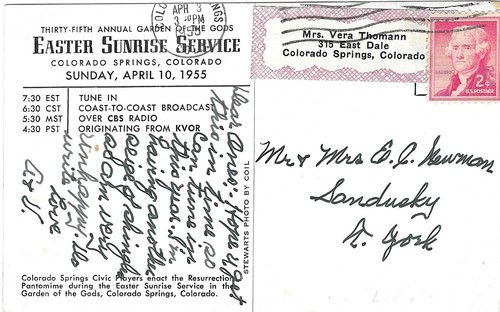 THIRTY-FIFTH ANNUAL GARDEN OF THE GODS
EASTER SUNRISE SERVICE
COLORADO SPRINGS, COLORADO
SUNDAY, APRIL 10, 1955
7:30 EST TUNE IN
6:30 CST COAST-TO-COAST BROADCAST
5:30 MST OVER CBS RADIO
4:30 PST ORIGINATING FROM KVOR
Dear Ones: Hope u get
this in time so
can tune in
this year. I'm
having another
siege of shingles
again very
unhappy. Do
write
Love
Colorado Springs Civic Players enact the Resurrection
Pantomime during the Easter Sunrise Service in the
Garden of the Gods, Colorado Springs, Colorado.
STEWARTS PHOTO BY COIL
APR 3
PM
Mrs. Vera Thomann
315 East Dale
Colorado Springs, Colorado
2¢
U.S. POSTAGE
Mr & Mrs E. C. Newman
Sandusky
N. York